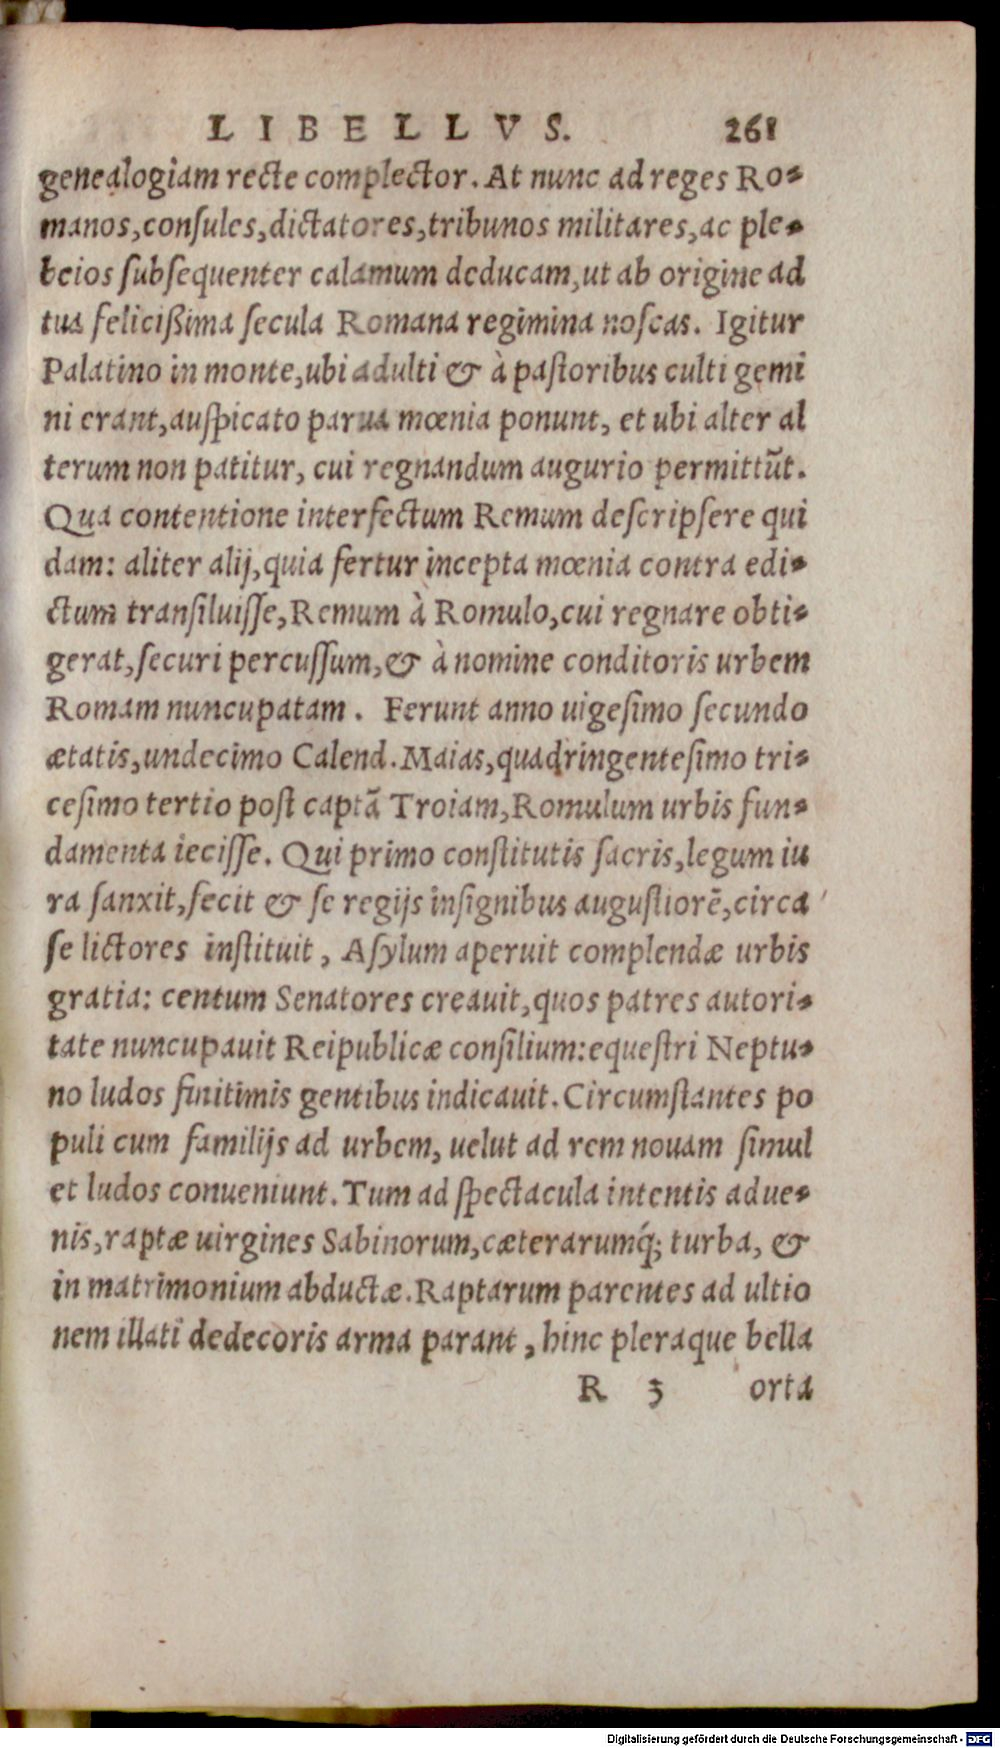 LIBELLVS. 261
genealogiam recte complector. At nunc ad reges Ro-
manos, consules, dictatores, tribunos militares, ac ple-
beios subsequenter calamum deducam, ut ab origine ad
tua felicißima secula Romana regimina noscas. Igitur
Palatino in monte, ubi adulti & à pastoribus culti gemi
ni erant, auspicato parua mœnia ponunt, et ubi alter al
terum non patitur, cui regnandum augurio permittũt.
Qua contentione interfectum Remum descripsere qui
dam: aliter alij, quia fertur incepta mœnia contra edi-
ctum transiluisse, Remum à Romulo, cui regnare obti-
gerat, securi percussum, & à nomine conditoris urbem
Romam nuncupatam. Ferunt anno uigesimo secundo
ætatis, undecimo Calend. Maias, quadringentesimo tri-
cesimo tertio post captã Troiam, Romulum urbis fun-
damenta iecisse. Qui primo constitutis sacris, legum iu
ra sanxit, fecit & se regijs insignibus augustiorẽ, circa
se lictores instituit, Asylum aperuit complendæ urbis
gratia: centum Senatores creauit, quos patres autori-
tate nuncupauit Reipublicæ consilium: equestri Neptu-
no ludos finitimis gentibus indicauit. Circumstantes po
puli cum familijs ad urbem, uelut ad rem nouam simul
et ludos conueniunt. Tum ad spectacula intentis adue-
nis, raptæ uirgines Sabinorum, cæterarumq́; turba, &
in matrimonium abductæ. Raptarum parentes ad ultio
nem illati dedecoris arma parant, hinc pleraque bella
R 3 orta
Digitalisierung gefördert durch die Deutsche Forschungsgemeinschaft - DFG